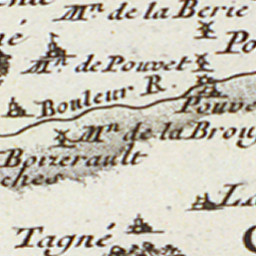 Mⁿ. de la Berie
Mⁿ. de Pouvet
Bouleur R.
Pouve
Mⁿ. de la Brou
Boizerault
ches
Tagné